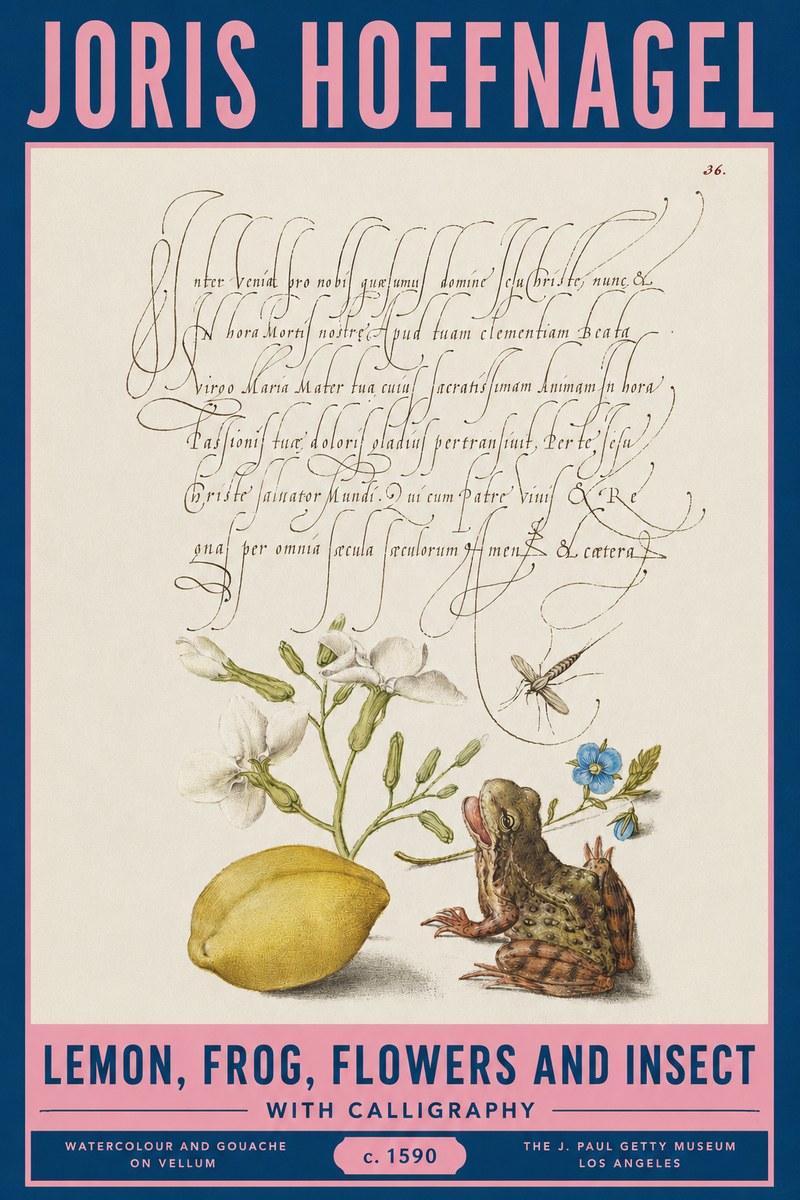 JORIS HOEFNAGEL
36.
nter veniat pro nobis quæsumus domine Jesu Christe, nunc &
IN hora Mortis nostre Apud tuam clementiam Beata
Virgo Maria Mater tua cuius sacratissimam Animam In hora
Passionis tuæ doloris gladius pertransiuit, Per te Jesu
Christe saluator Mundi. Qui cum Patre Vivis & Re
gnas per omnia sæcula sæculorum Amen & cætera
LEMON, FROG, FLOWERS AND INSECT
WITH CALLIGRAPHY
WATERCOLOUR AND GOUACHE
ON VELLUM
c. 1590
THE J. PAUL GETTY MUSEUM
LOS ANGELES